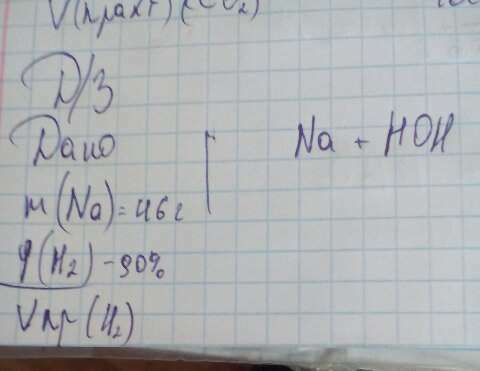 V(практ)(CO₂)
Д/З
Дано
m(Na)=46г
φ(H₂)-90%
Vпр(H₂)
Na + HOH